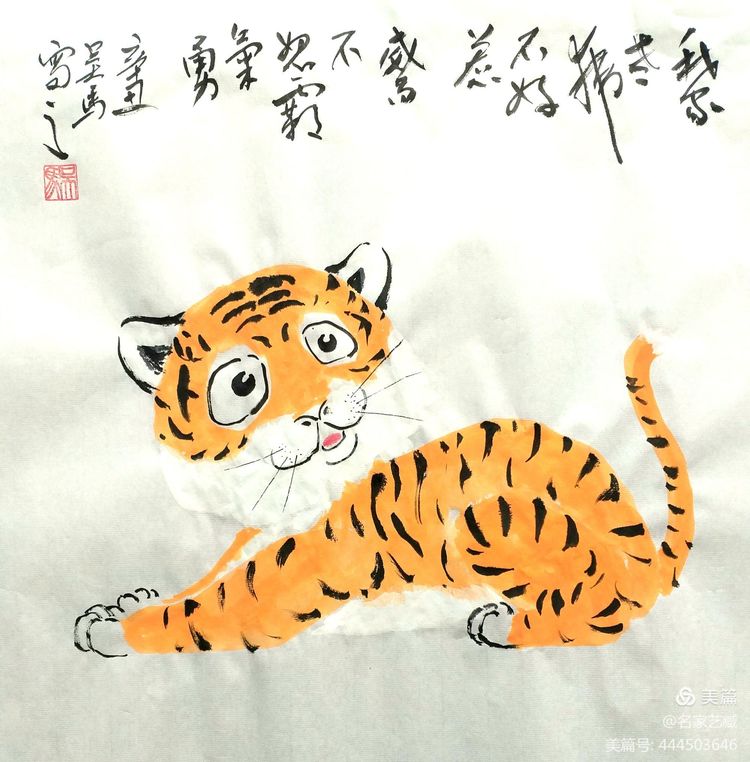 我家
老
不好
惹
威
不
怒霸
氣
勇
辛丑
吴馬
寫之
美篇
@名家艺臧
美篇号: 444503646